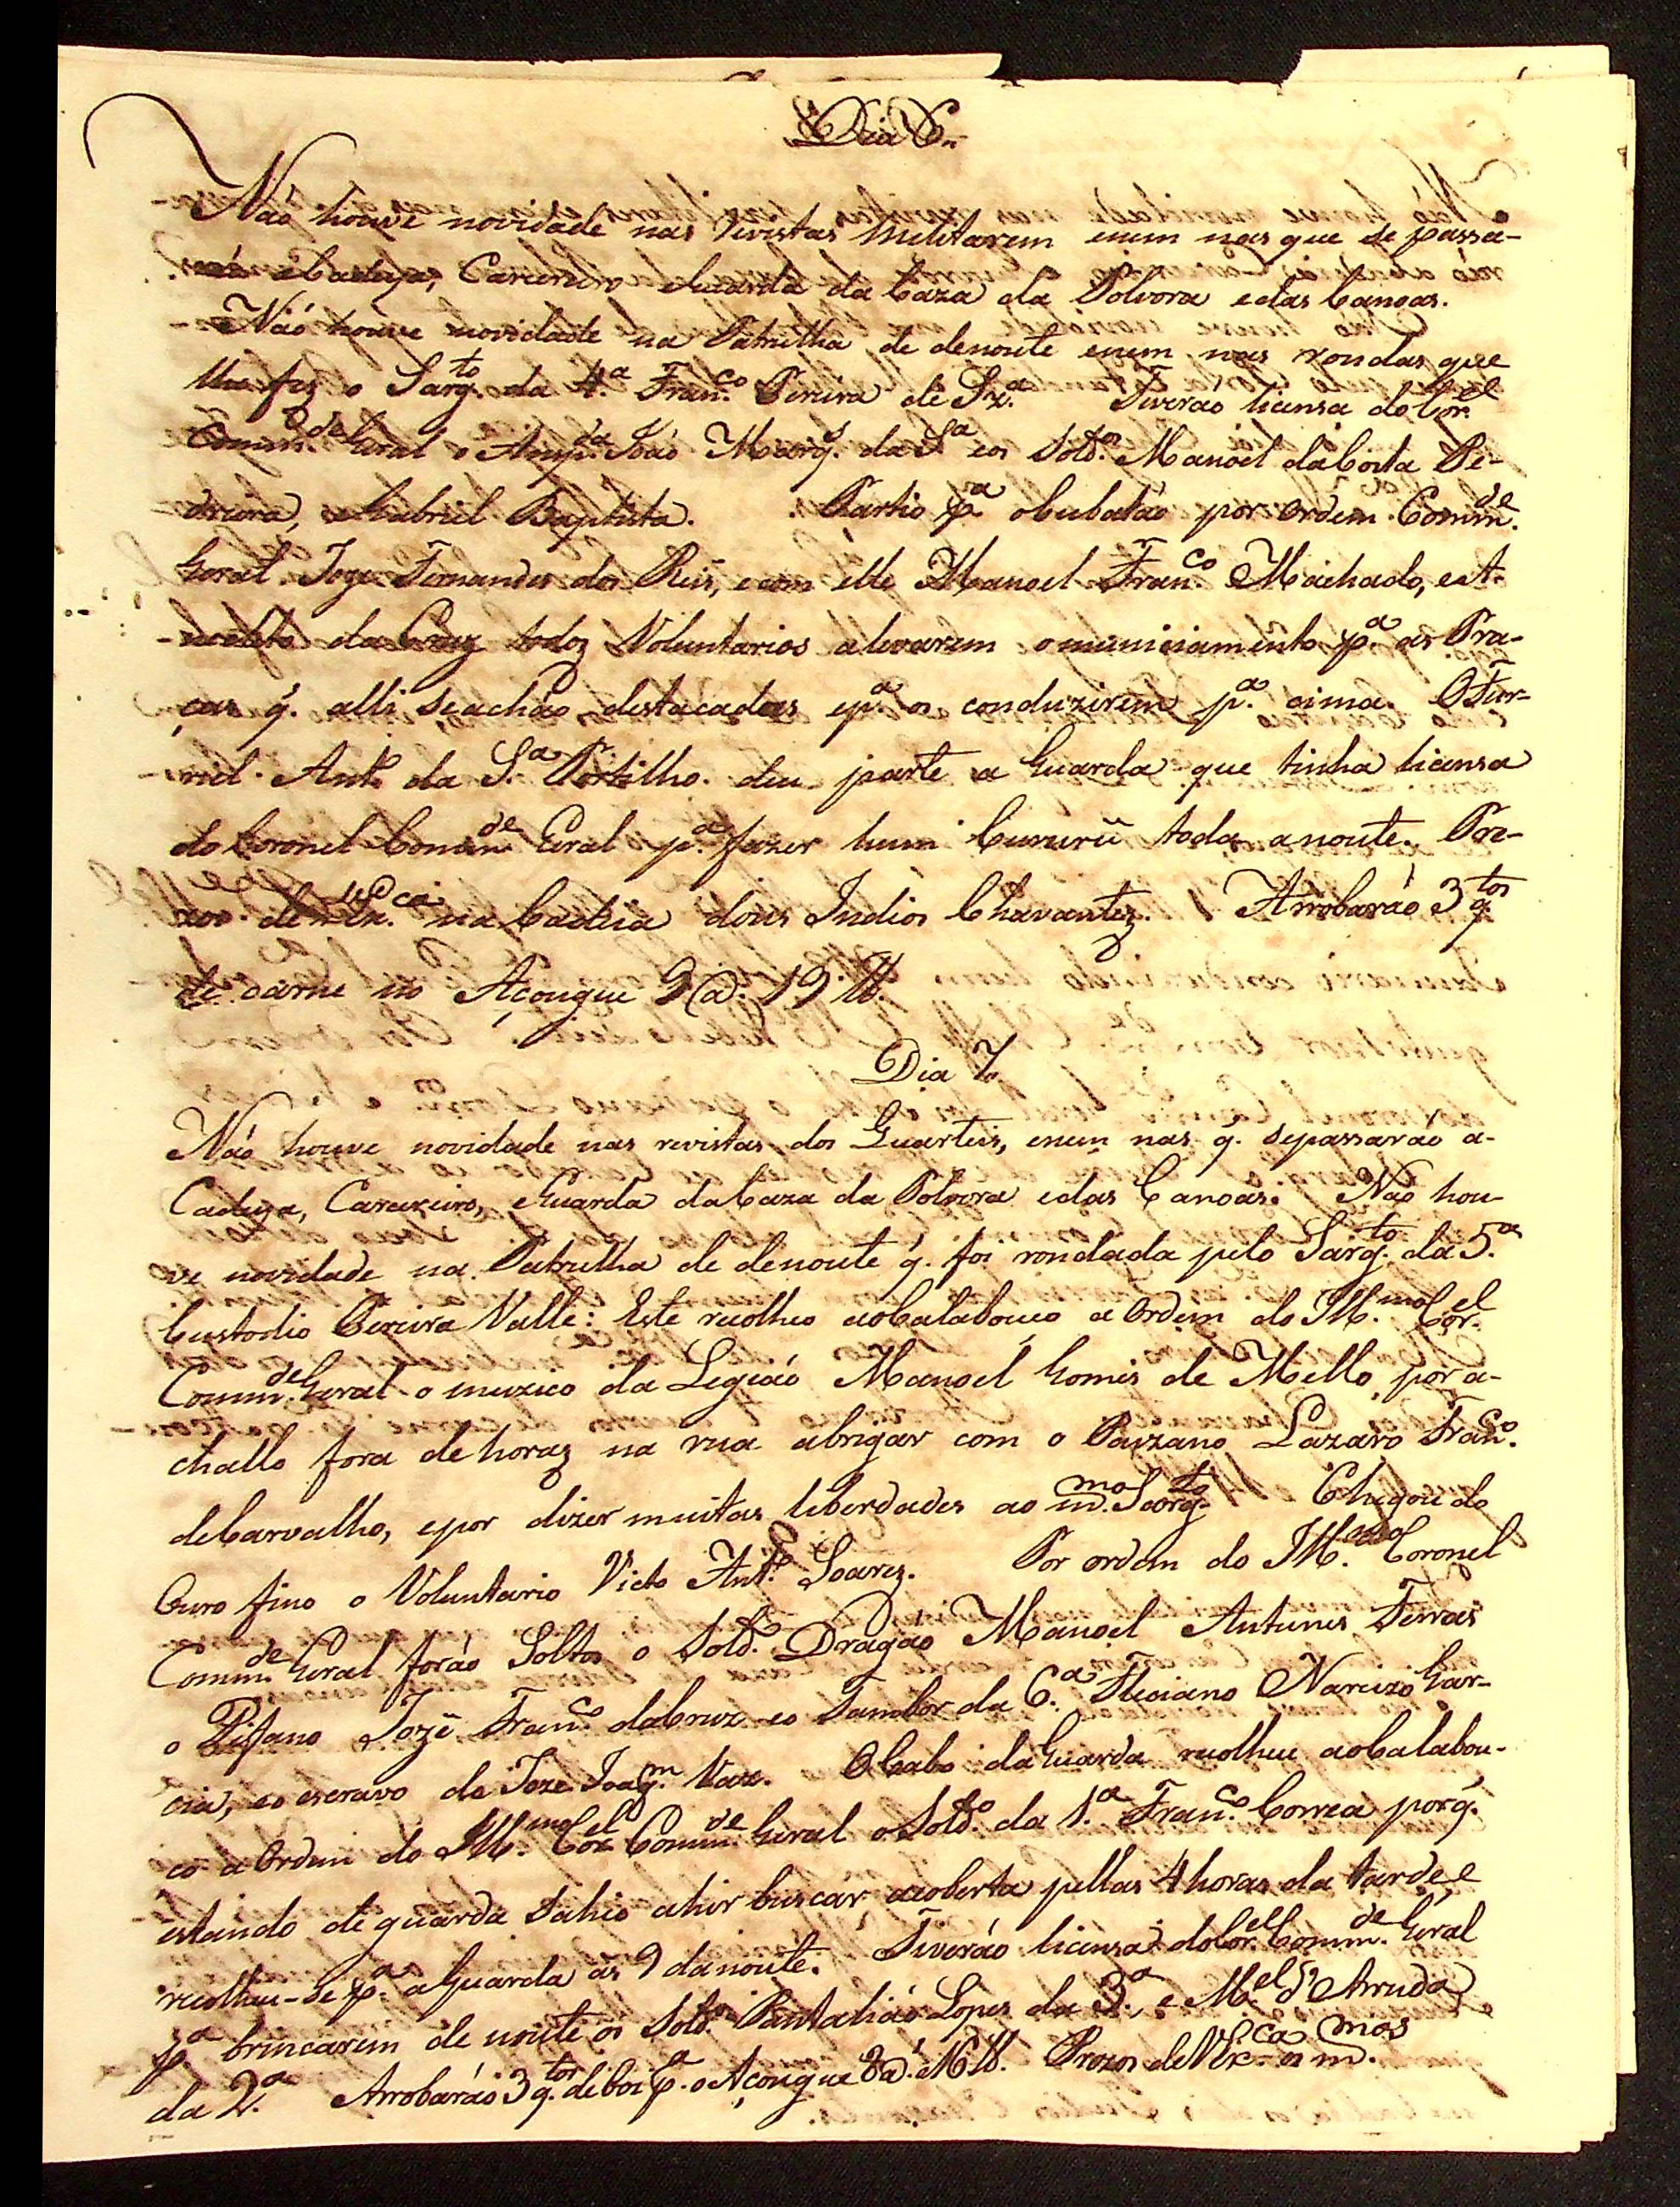 Dia 6.
Não houve novidade nas revistas Militarem enem nas que se passa-
rão a Cadeya, Carcereiro eGuarda da Caza da Polvora edas Canoas.
Não houve novidade na Patrulha de denoute enem nas rondas que
lhe fez o Sarg.to da 4.a Fran.co Pereira de Sz.a Tiverão licensa do Cor.el
Comm.de Geral o Ansp.da João Marq.s da S.a eos Sold.os Manoel daCosta Pe-
dreira, eGabriel Baptista. Partio p.a oCubatão por ordem Comm.de
Geral Joze Fernandes dos Reis, ecom elle Manoel Fran.co Machado, e
da Cruz todos Voluntarios alevarem omuniciamento p.a as Pra-
ças q. alli seachão destacadas ep.a os conduzirem p.a cima. OFur-
riel Ant.o da S.a Portilho deu parte a Guarda que tinha licensa
do Coronel Comm.de Geral p.a fazer hum Cururû toda anoute. Pre-
zos de na Cadeia dous Indios Chavantes. Arrobarão 3 q.tos
de carne no Açougue 9 @. 19 lb.
Dia 7.
Não houve novidade nas revistas dos Quarteis, enem nas q. sepassarão a-
Cadeya, Carcereiro, eGuarda daCaza da Polvora edas Canoas. Não hou-
ve novidade na Patrulha de denoute q. foi rondada pelo Sarg.to da 5.a
Custodio Pereira Valle: Este recolheo aoCalabouco a Ordem do Ill.mo S Cor.el
Comm.de Geral o muzico da Legião Manoel Gomes de Mello por a-
challo fora de horas na rua abrigar com o Paizano Lazaro Fran.co
deCarvalho, epor dizer muitas liberdades ao m.mo Sarg.to Chegou do
Ouro fino o Voluntario Victo Ant.o Soares. Por ordem do Ill.mo S Coronel
Comm.de Geral forão Soltos o Sold.o Dragão Manoel Antunes Ferras
o Pifano Jozé Fran.co daCruz eo Tambor da 6.a Feliciano Narcizo Gar-
cia, eo escravo de Joze Joaq.m Vaz. OCabo daGuarda recolheu aoCalabou-
co a Ordem do Ill.mo S Cor.el Comm.de Geral oSold.o da 1.a Fran.co Correa porq.
estando de guarda Sahio ahir buscar acoberta pellas 4 horas da tarde e
recolheu-se p.a aGuarda as 9 danoute. Tiverão licensa doCor.el Comm.de Geral
p.a brincarem de noute os Sold.os Pantalião Lopes da 3.a, e M.el d'Arruda
da 2.a Arrobarão 3 q.tos deboi p.a oAçougue 8 @. 16 lb. Prezos de os m.mos